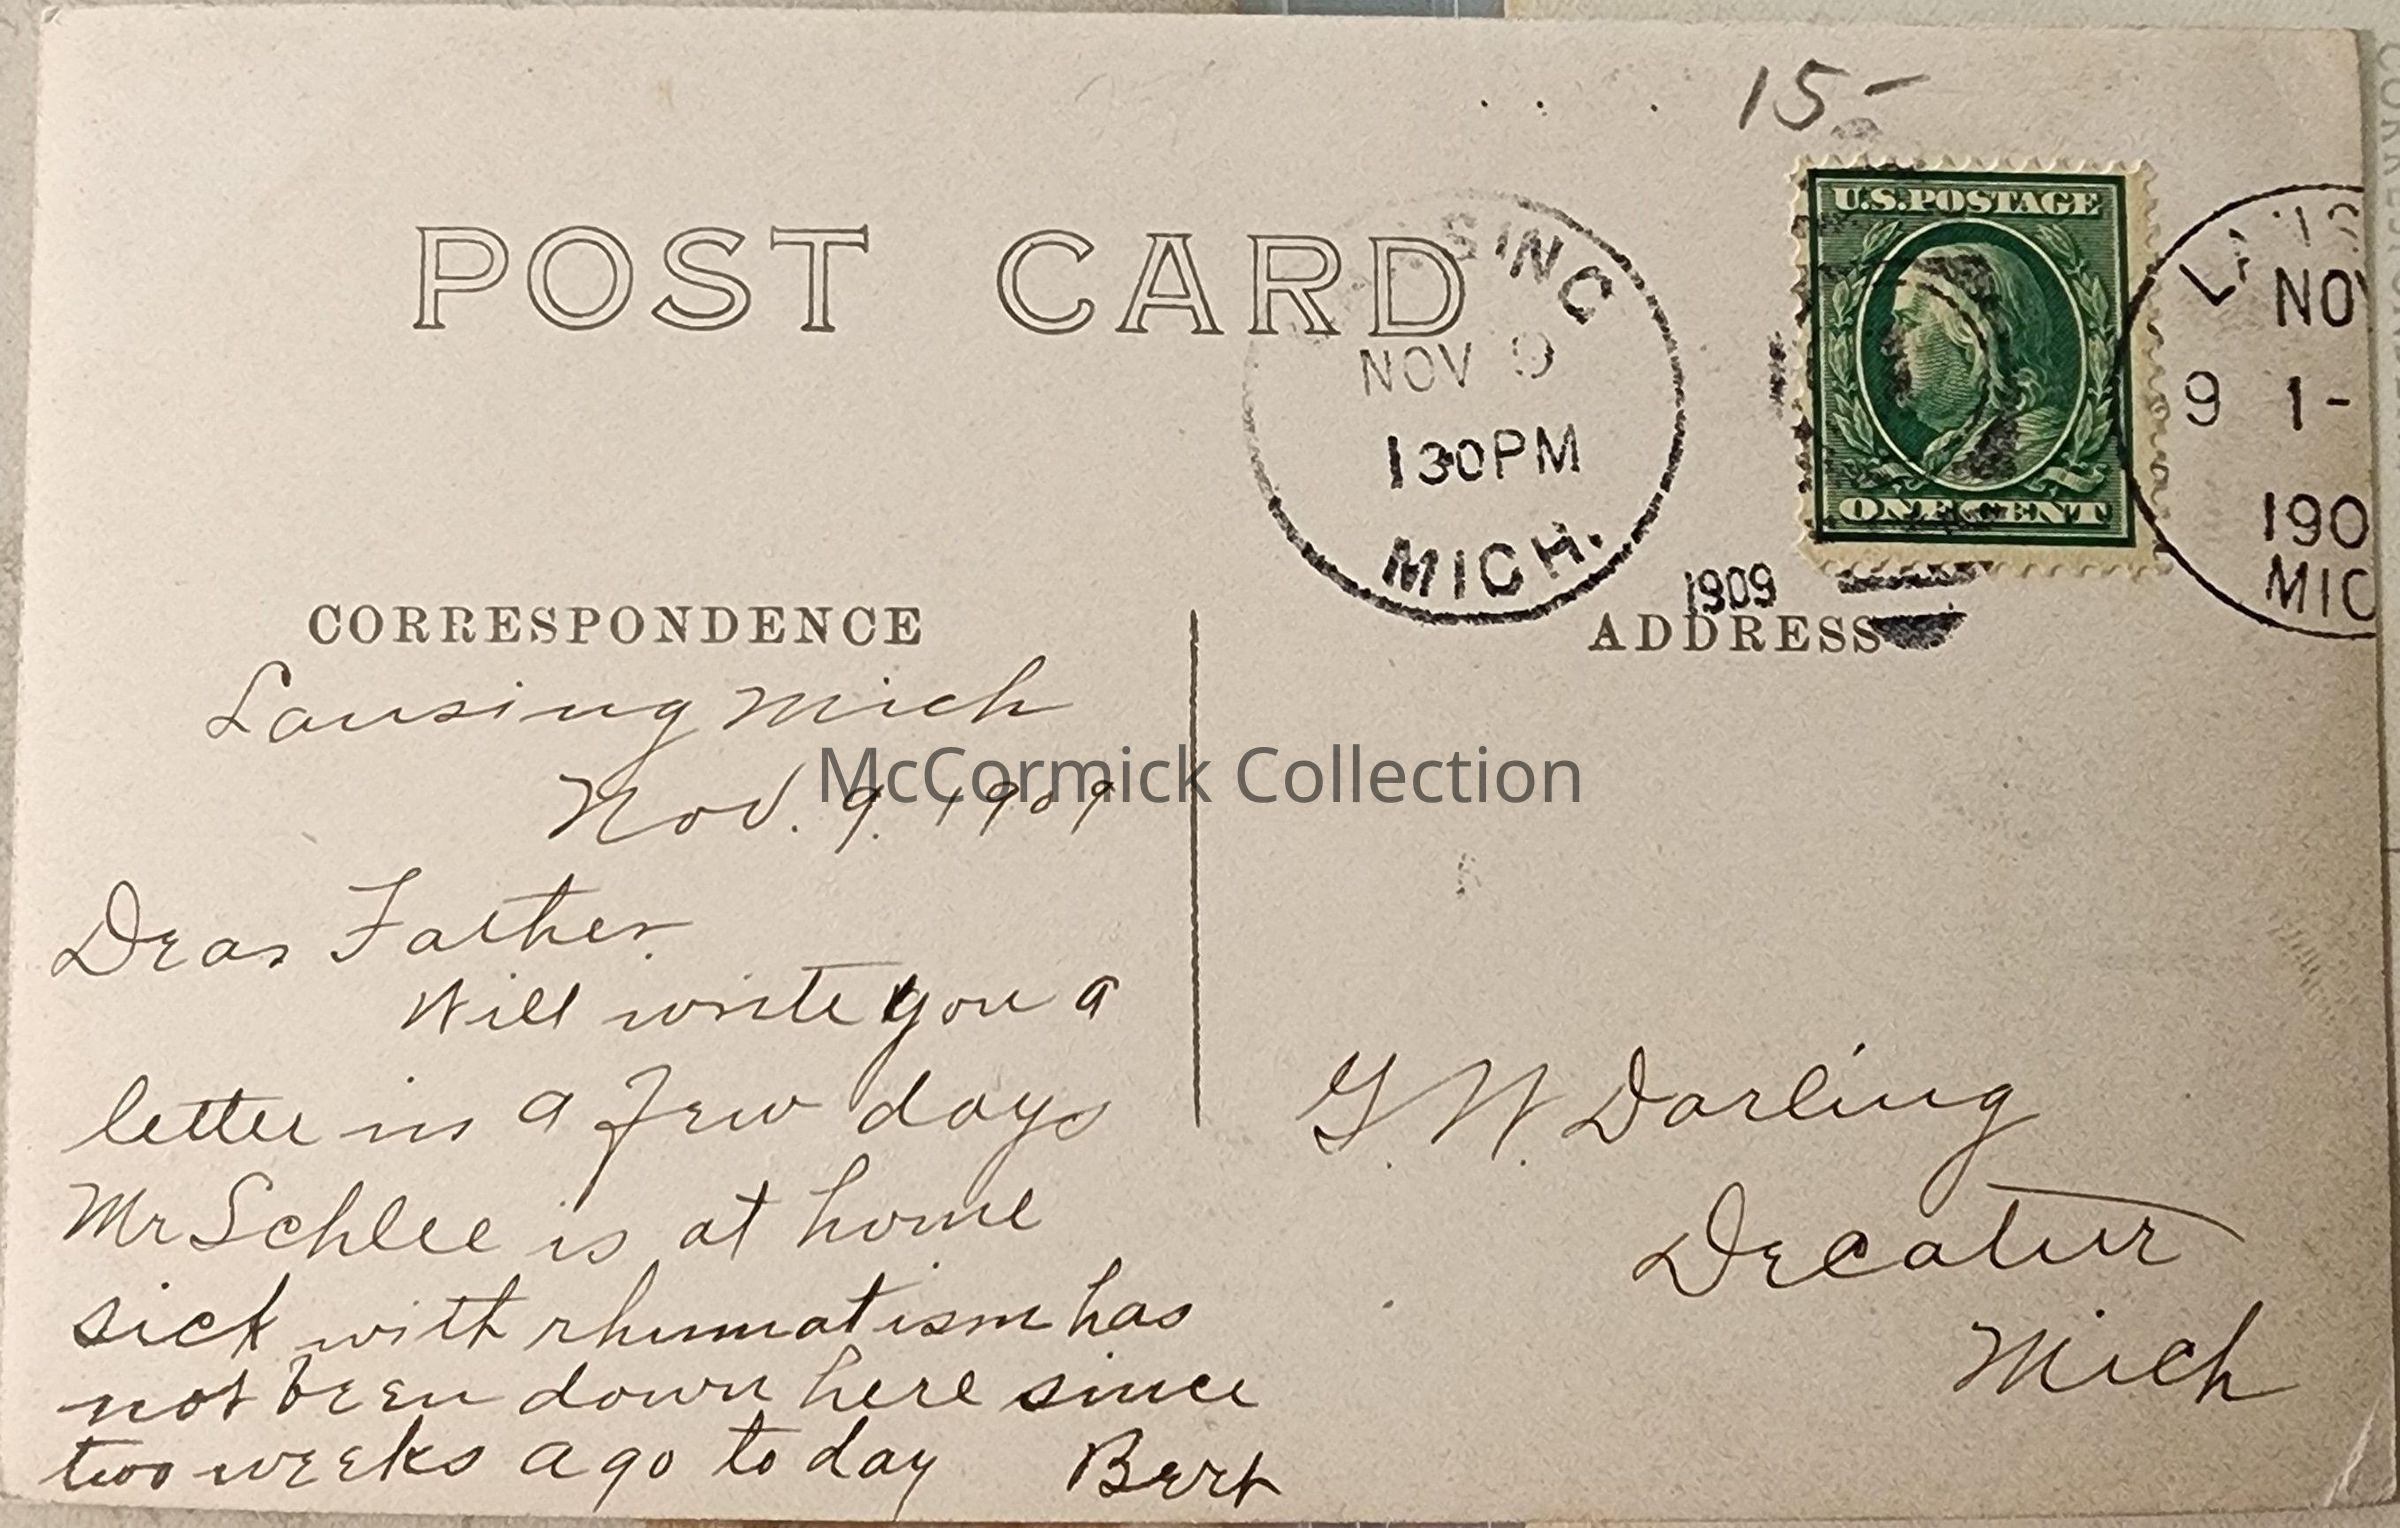 15-
U.S.POSTAGE
ONE CENT
POST CARD
SING
NOV 9
130PM
MICH.
1909
NOV
9 1-
190
MIC
CORRESPONDENCE
ADDRESS
Lansing Mich
Nov. 9. 1909
McCormick Collection
Dear Father.
Will write you a
letter in a few days
Mr Schlee is at home
sick with rhumatism has
not been down here since
two weeks ago to day Bert
G. W. Darling
Decatur
Mich